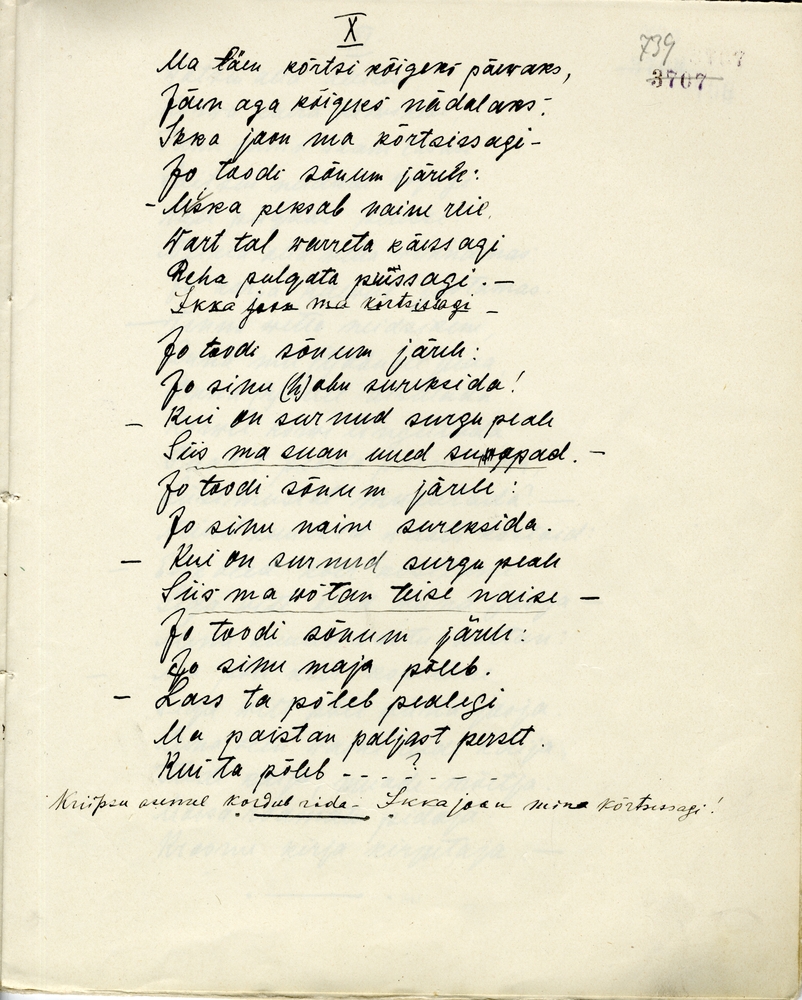 X
739
3707
Ma läen kõrtsi kõigeks päewaks,
Jäen aga kõigeks nädalaks.
Ikka joon ma kõrtsissagi –
Jo toodi sõnum järele:
– Miska peksab naine reie.
Wart tal warreta käessagi
Reha pulgata piussagi. –
Ikka joon ma kõrtsissagi –
Jo toodi sõnum järele:
Jo sinu (h)obu sureksida!
– Kui on surnud surgu peale
Siis ma suan uued suapad. –
Jo toodi sõnum järele:
Jo sinu naine sureksida.
– Kui on surnud surgu peale
Siis ma wõtan teise naise –
Jo toodi sõnum järele:
Jo sinu maja põleb.
– Lass ta põleb pealegi
Ma paistan paljast perset.
Kui ta põleb - - - ? - - -
Kriipsu asemel kordub rida – Ikka joon mina kõrtsissagi!